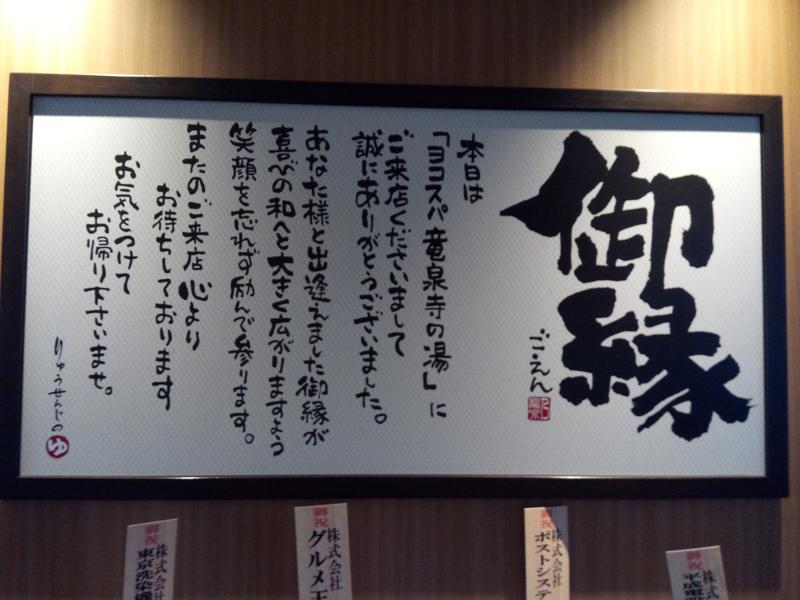 御縁
ごえん
本日は
「ヨコスパ 竜泉寺の湯」に
ご来店くださいまして
誠にありがとうございました。
あなた様と出逢えました御縁が
喜びの和へと大きく広がりますよう
笑顔を忘れず励んで参ります。
またのご来店 心より
お待ちしております
お気をつけて
お帰り下さいませ。
りゅうせんじの
ゆ
御祝
株式会社
ポストシステ
御祝
株式会社
グルメ王
御祝
株式会社
東京洗染機
御祝
株式
平成電